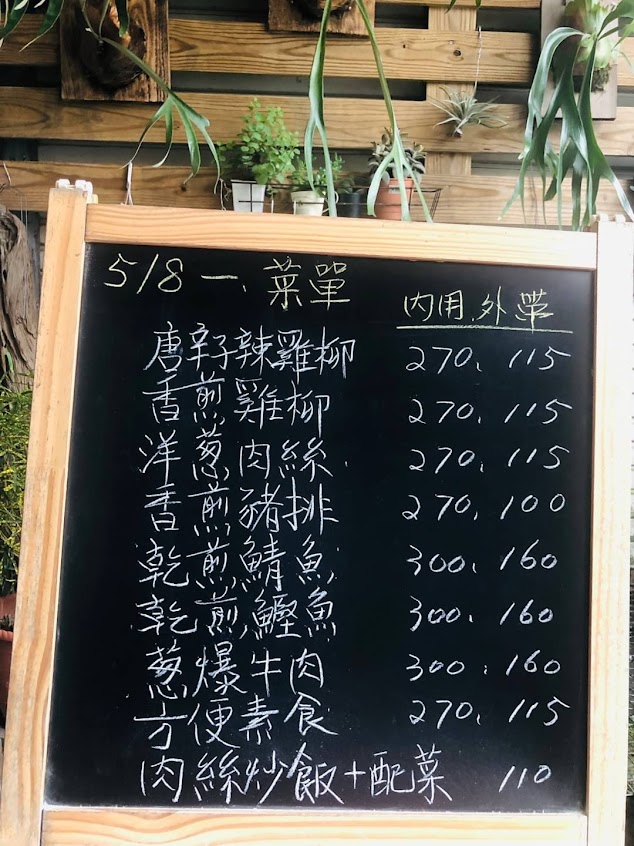 5/8 一、菜單
內用、外帶
唐辛子辣雞柳 270、115
香煎雞柳 270、115
洋蔥肉絲 270、115
香煎豬排 270、100
乾煎鯖魚 300、160
乾煎鰹魚 300、160
蔥爆牛肉 300、160
方便素食 270、115
肉絲炒飯+配菜 110